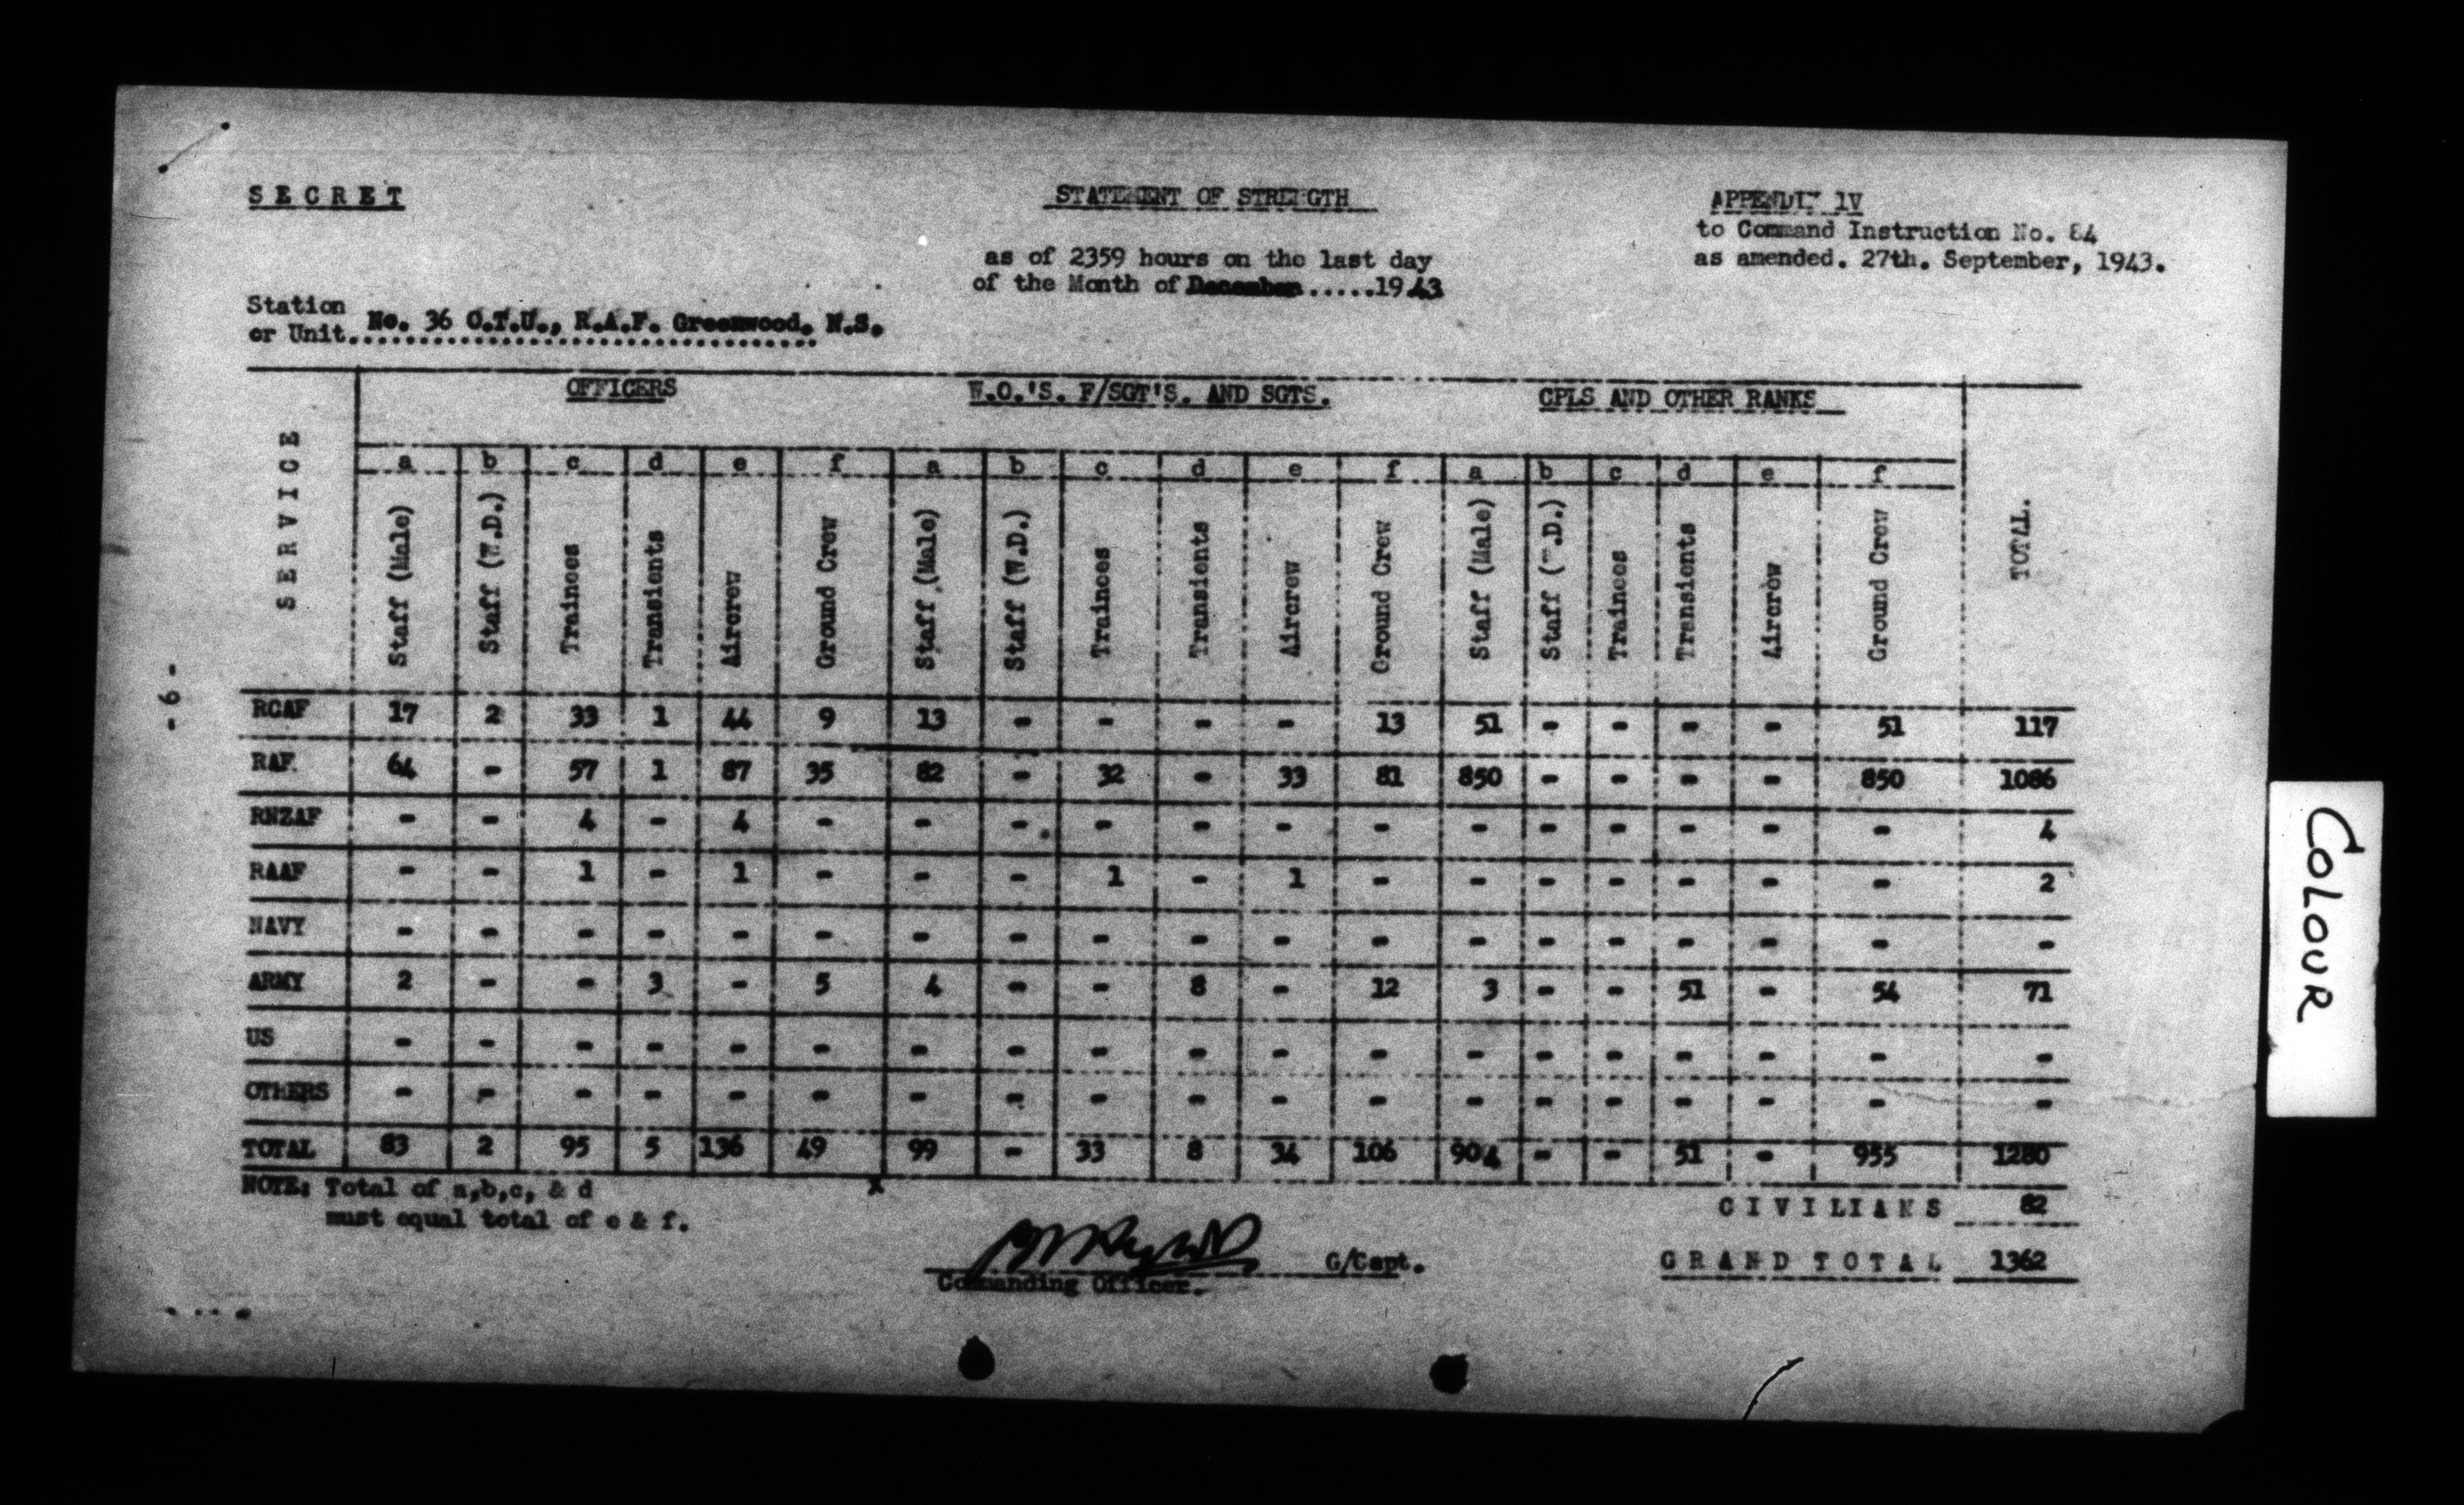 SECRET
STATEMENT OF STRENGTH
APPENDIX 1V
to Command Instruction No. 84
as amended. 27th. September, 1943.
as of 2359 hours on the last day
of the Month of December.....1943
Station
or Unit. No. 36 O.T.U., R.A.F. Greenwood. N.S.
OFFICERS W.O.'S. F/SGT'S. AND SGTS. CPLS AND OTHER RANKS
SERVICE a b c d e f a b c d e f a b c d e f TOTAL.
Staff (Male) Staff (W.D.) Trainees Transients Aircrew Ground Crew Staff (Male) Staff (W.D.) Trainees Transients Aircrew Ground Crew Staff (Male) Staff (W.D.) Trainees Transients Aircrew Ground Crew
RCAF 17 2 33 1 44 9 13 - - - - 13 51 - - - - 51 117
RAF. 64 - 57 1 87 35 82 - 32 - 33 81 850 - - - - 850 1086
RNZAF - - 4 - 4 - - - - - - - - - - - - - 4
RAAF - - 1 - 1 - - - 1 - 1 - - - - - - - 2
NAVY - - - - - - - - - - - - - - - - - - -
ARMY 2 - - 3 - 5 4 - - 8 - 12 3 - - 51 - 54 71
US - - - - - - - - - - - - - - - - - - -
OTHERS - - - - - - - - - - - - - - - - - - -
TOTAL 83 2 95 5 136 49 99 - 33 8 34 106 904 - - 51 - 955 1280
NOTE: Total of a,b,c, & d
must equal total of e & f.
x
CIVILIANS 82
G/Capt.
Commanding Officer.
GRAND TOTAL 1362
- 6 -
COLOUR